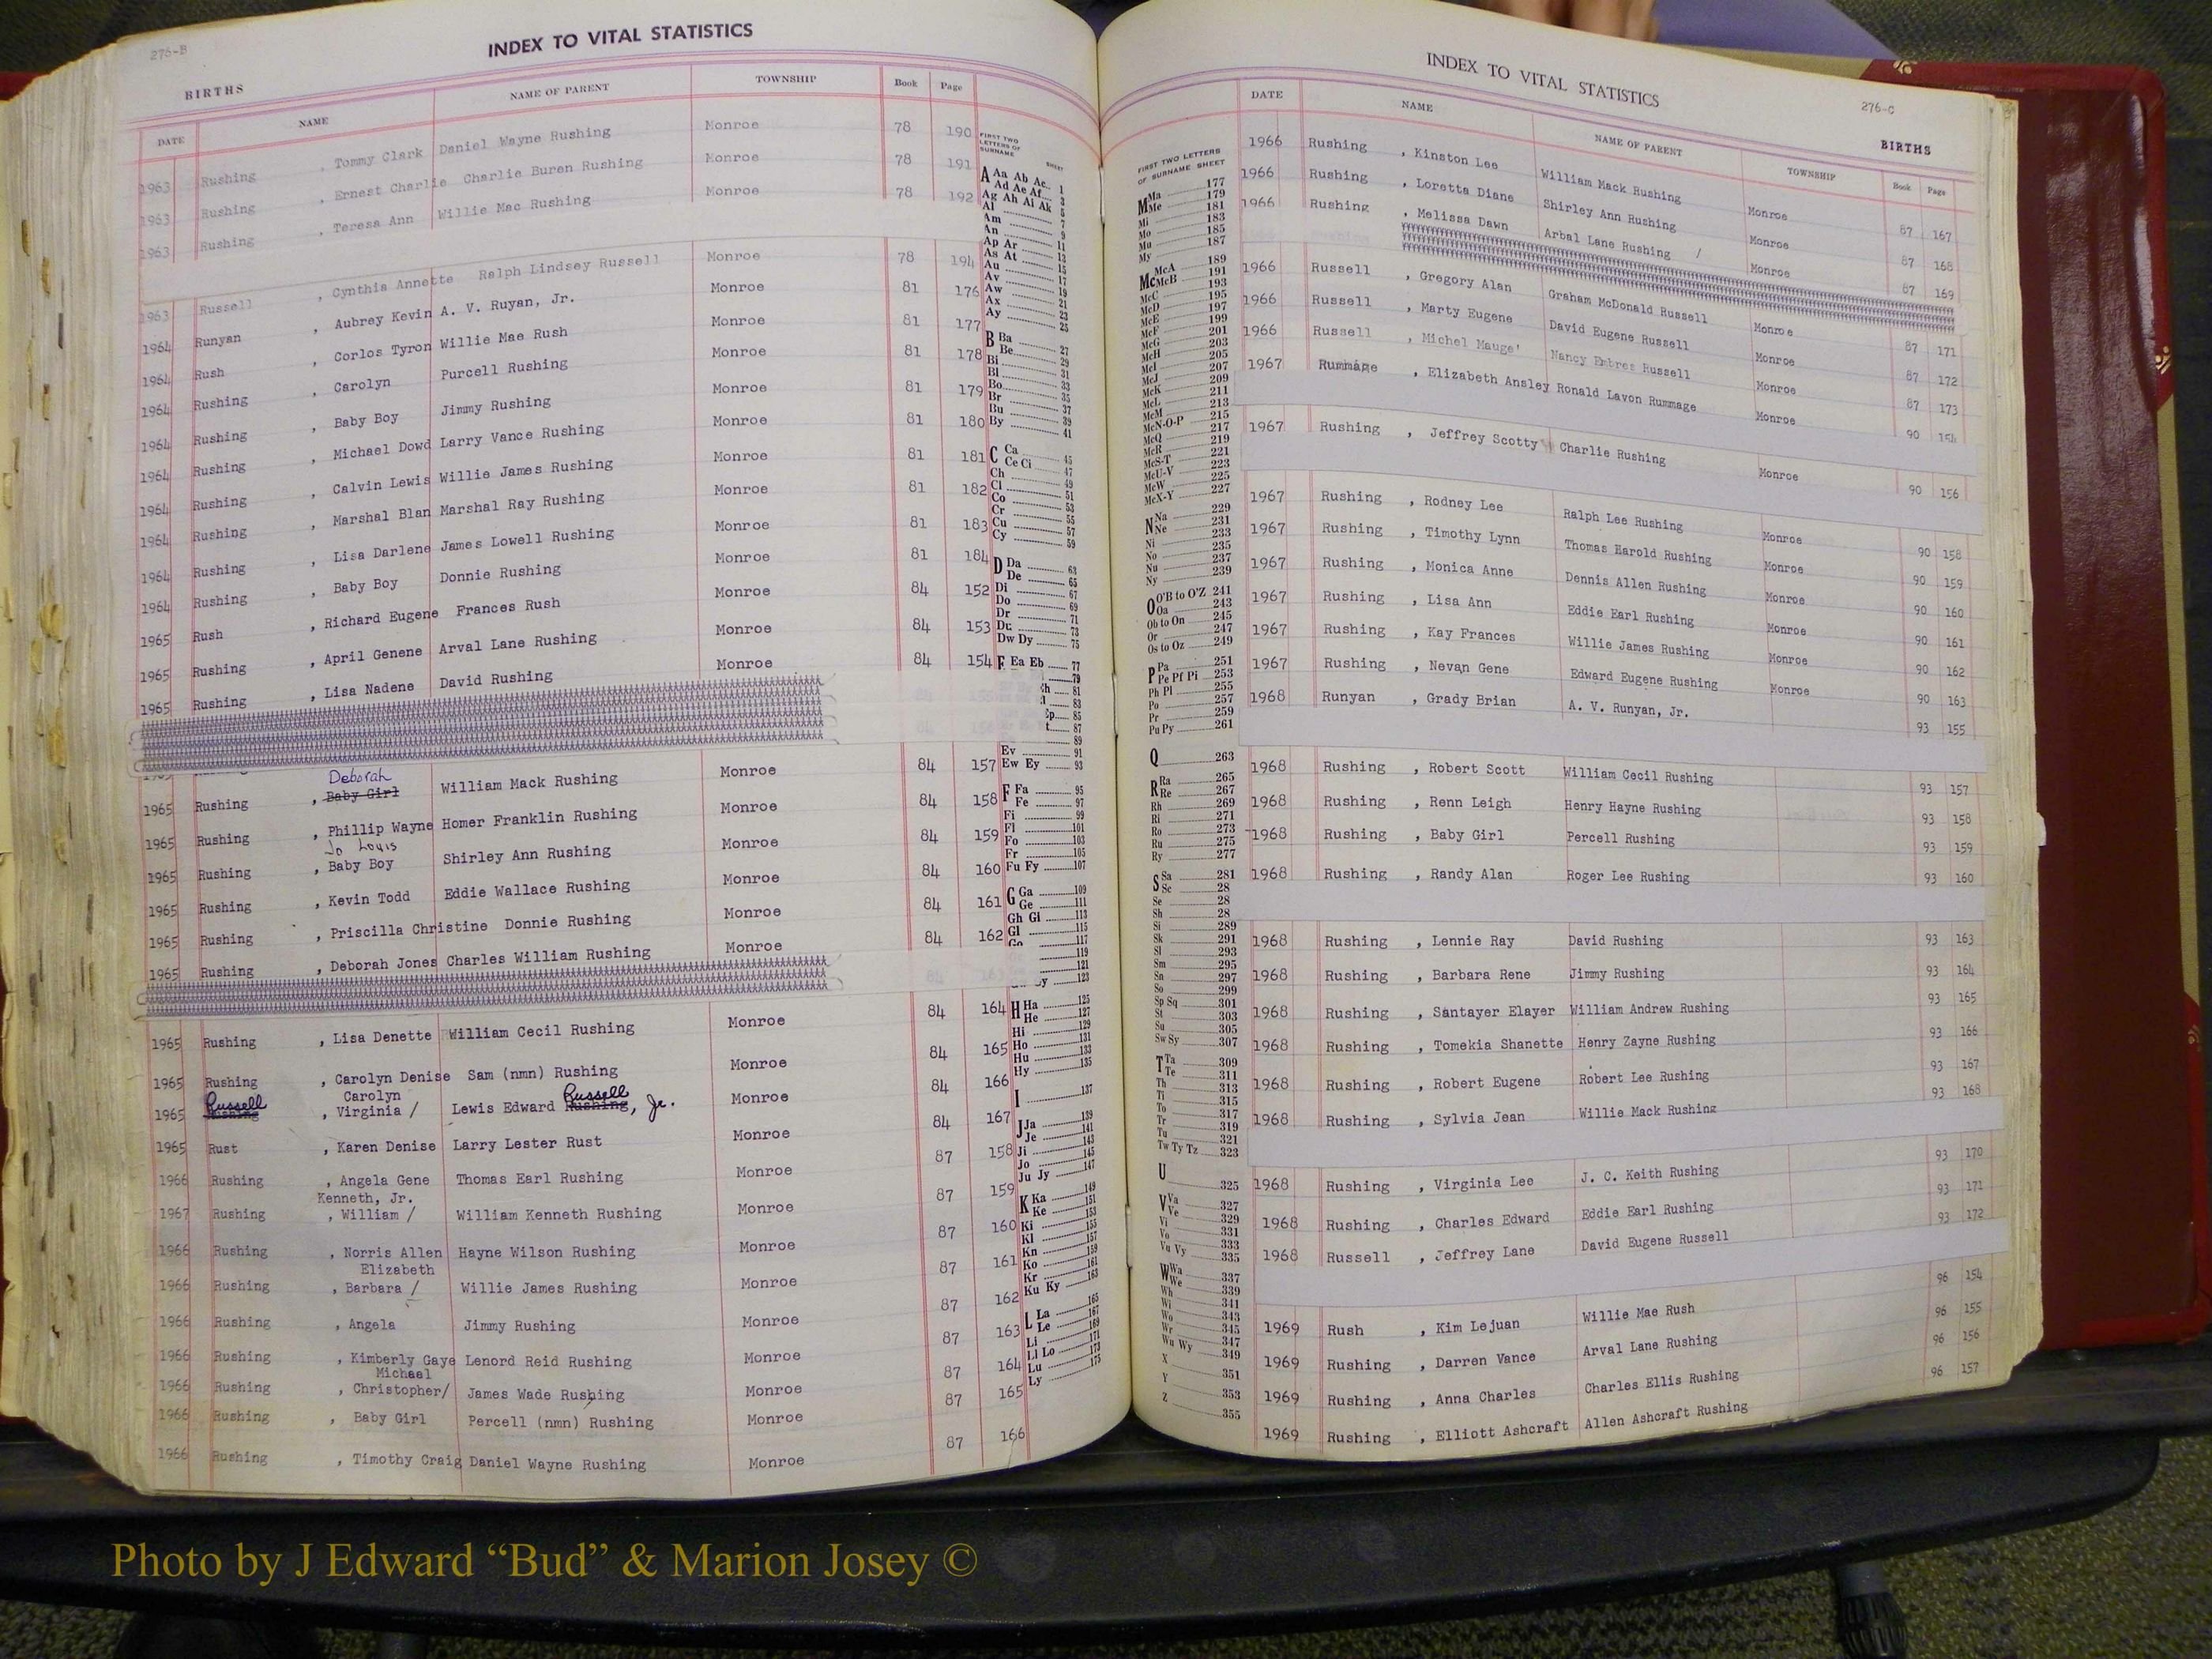 276-B
INDEX TO VITAL STATISTICS
BIRTHS
DATE NAME NAME OF PARENT TOWNSHIP Book Page
1963 Rushing , Tommy Clark Daniel Wayne Rushing Monroe 78 190
1963 Rushing , Ernest Charlie Charlie Buren Rushing Monroe 78 191
1963 Rushing , Teresa Ann Willie Mac Rushing Monroe 78 192
1963 Russell , Cynthia Annette Ralph Lindsey Russell Monroe 78 194
1964 Runyan , Aubrey Kevin A. V. Ruyan, Jr. Monroe 81 176
1964 Rush , Corlos Tyron Willie Mae Rush Monroe 81 177
1964 Rushing , Carolyn Purcell Rushing Monroe 81 178
1964 Rushing , Baby Boy Jimmy Rushing Monroe 81 179
1964 Rushing , Michael Dowd Larry Vance Rushing Monroe 81 180
1964 Rushing , Calvin Lewis Willie James Rushing Monroe 81 181
1964 Rushing , Marshal Blan Marshal Ray Rushing Monroe 81 182
1964 Rushing , Lisa Darlene James Lowell Rushing Monroe 81 183
1964 Rushing , Baby Boy Donnie Rushing Monroe 81 184
1965 Rush , Richard Eugene Frances Rush Monroe 84 152
1965 Rushing , April Genene Arval Lane Rushing Monroe 84 153
1965 Rushing , Lisa Nadene David Rushing Monroe 84 154
Deborah
1965 Rushing , Baby Girl William Mack Rushing Monroe 84 157
1965 Rushing , Phillip Wayne Homer Franklin Rushing Monroe 84 158
Jo Louis
1965 Rushing , Baby Boy Shirley Ann Rushing Monroe 84 159
1965 Rushing , Kevin Todd Eddie Wallace Rushing Monroe 84 160
1965 Rushing , Priscilla Christine Donnie Rushing Monroe 84 161
1965 Rushing , Deborah Jones Charles William Rushing Monroe 84 162
1965 Rushing , Lisa Denette William Cecil Rushing Monroe 84 164
1965 Rushing , Carolyn Denise Sam (nmn) Rushing Monroe 84 165
Russell Carolyn Russell
1965 Rushing , Virginia / Lewis Edward Rushing, Jr. Monroe 84 166
1965 Rust , Karen Denise Larry Lester Rust Monroe 84 167
1966 Rushing , Angela Gene Thomas Earl Rushing Monroe 87 158
Kenneth, Jr.
1967 Rushing , William / William Kenneth Rushing Monroe 87 159
1966 Rushing , Norris Allen Hayne Wilson Rushing Monroe 87 160
Elizabeth
1966 Rushing , Barbara / Willie James Rushing Monroe 87 161
1966 Rushing , Angela Jimmy Rushing Monroe 87 162
1966 Rushing , Kimberly Gaye Lenord Reid Rushing Monroe 87 163
Michael
1966 Rushing , Christopher/ James Wade Rushing Monroe 87 164
1966 Rushing , Baby Girl Percell (nmn) Rushing Monroe 87 165
1966 Rushing , Timothy Craig Daniel Wayne Rushing Monroe 87 166
FIRST TWO
LETTERS OF
SURNAME SHEET
A Aa Ab Ac 1
Ad Ae Af 3
Ag Ah Ai Ak 5
Al 7
Am 9
An 11
Ap Ar 13
As At 15
Au 17
Av 19
Aw 21
Ax 23
Ay 25
B Ba 27
Be 29
Bi 31
Bl 33
Bo 35
Br 37
Bu 39
By 41
C Ca 45
Ce Ci 47
Ch 49
Cl 51
Co 53
Cr 55
Cu 57
Cy 59
D Da 63
De 65
Di 67
Do 69
Dr 71
Du 73
Dw Dy 75
E Ea Eb 77
79
81
83
85
87
89
Ev 91
Ew Ey 93
F Fa 95
Fe 97
Fi 99
Fl 101
Fo 103
Fr 105
Fu Fy 107
G Ga 109
Ge 111
Gh Gi 113
Gl 115
Go 117
119
121
123
H Ha 125
He 127
Hi 129
Ho 131
Hu 133
Hy 135
I 137
J Ja 139
Je 141
Ji 143
Jo 145
Ju Jy 147
K Ka 149
Ke 151
Ki 153
Kl 155
Kn 157
Ko 159
Kr 161
Ku Ky 163
L La 165
Le 167
Li 169
Ll Lo 171
Lu 173
Ly 175
INDEX TO VITAL STATISTICS
276-C
BIRTHS
FIRST TWO LETTERS
OF SURNAME SHEET
M Ma 177
Me 179
Mi 181
Mo 183
Mu 185
My 187
Mc McA 189
McB 191
McC 193
McD 195
McE 197
McF 199
McG 201
McH 203
McI 205
McJ 207
McK 209
McL 211
McM 213
McN-O-P 215
McQ 217
McR 219
McS-T 221
McU-V 223
McW 225
McX-Y 227
N Na 229
Ne 231
Ni 233
No 235
Nu 237
Ny 239
O O'B to O'Z 241
Oa 243
Ob to On 245
Or 247
Os to Oz 249
P Pa 251
Pe Pf Pi 253
Ph Pl 255
Po 257
Pr 259
Pu Py 261
Q 263
R Ra 265
Re 267
Rh 269
Ri 271
Ro 273
Ru 275
Ry 277
S Sa 281
Sc 28
Se 28
Sh 28
Si 289
Sk 291
Sl 293
Sm 295
Sn 297
So 299
Sp Sq 301
St 303
Su 305
Sw Sy 307
T Ta 309
Te 311
Th 313
Ti 315
To 317
Tr 319
Tu 321
Tw Ty Tz 323
U 325
V Va 327
Ve 329
Vi 331
Vo 333
Vu Vy 335
W Wa 337
We 339
Wh 341
Wi 343
Wo 345
Wr 347
Wu Wy 349
X 351
Y 353
Z 355
DATE NAME NAME OF PARENT TOWNSHIP Book Page
1966 Rushing , Kinston Lee William Mack Rushing Monroe 87 167
1966 Rushing , Loretta Diane Shirley Ann Rushing Monroe 87 168
1966 Rushing , Melissa Dawn Arbal Lane Rushing / Monroe 87 169
1966 Russell , Gregory Alan Graham McDonald Russell Monroe 87 171
1966 Russell , Marty Eugene David Eugene Russell Monroe 87 172
1966 Russell , Michel Mauge' Nancy Embres Russell Monroe 87 173
1967 Rummage , Elizabeth Ansley Ronald Lavon Rummage Monroe 90 154
1967 Rushing , Jeffrey Scotty Charlie Rushing Monroe 90 156
1967 Rushing , Rodney Lee Ralph Lee Rushing Monroe 90 158
1967 Rushing , Timothy Lynn Thomas Harold Rushing Monroe 90 159
1967 Rushing , Monica Anne Dennis Allen Rushing Monroe 90 160
1967 Rushing , Lisa Ann Eddie Earl Rushing Monroe 90 161
1967 Rushing , Kay Frances Willie James Rushing Monroe 90 162
1967 Rushing , Nevan Gene Edward Eugene Rushing Monroe 90 163
1968 Runyan , Grady Brian A. V. Runyan, Jr. 93 155
1968 Rushing , Robert Scott William Cecil Rushing 93 157
1968 Rushing , Renn Leigh Henry Hayne Rushing 93 158
1968 Rushing , Baby Girl Percell Rushing 93 159
1968 Rushing , Randy Alan Roger Lee Rushing 93 160
1968 Rushing , Lennie Ray David Rushing 93 163
1968 Rushing , Barbara Rene Jimmy Rushing 93 164
1968 Rushing , Santayer Elayer William Andrew Rushing 93 165
1968 Rushing , Tomekia Shanette Henry Zayne Rushing 93 166
1968 Rushing , Robert Eugene Robert Lee Rushing 93 167
1968 Rushing , Sylvia Jean Willie Mack Rushing 93 168
1968 Rushing , Virginia Lee J. C. Keith Rushing 93 170
1968 Rushing , Charles Edward Eddie Earl Rushing 93 171
1968 Russell , Jeffrey Lane David Eugene Russell 93 172
1969 Rush , Kim Lejuan Willie Mae Rush 96 154
1969 Rushing , Darren Vance Arval Lane Rushing 96 155
1969 Rushing , Anna Charles Charles Ellis Rushing 96 156
1969 Rushing , Elliott Ashcraft Allen Ashcraft Rushing 96 157
Photo by J Edward “Bud” & Marion Josey ©